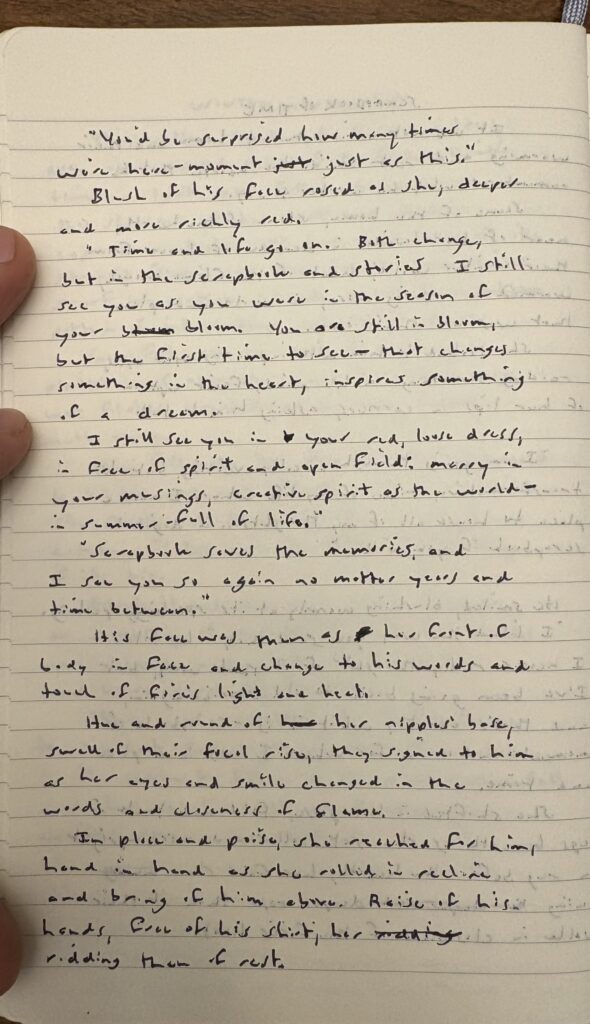 "You'd be surprised how many times
we're here-moment just just as this."
Blush of his face rosed as she, deeper
and more richly red.
"Time and life go on. Both change,
but in the scrapbook and stories I still
see you as you were in the season of
your bloom. You are still in bloom,
but the first time to see - that changes
something in the heart, inspires something
of a dream.
I still see you in your red, loose dress,
in free of spirit and open field: merry in
your musings, creative spirit as the world -
in summer-full of life."
"Scrapbook saves the memories, and
I see you so again no matter years and
time between."
His face was then as her front of
body in face and change to his words and
touch of fire's light and heat.
Hue and round of her nipples' base,
swell of their focal rise, they signed to him
as her eyes and smile changed in the
words and closeness of flame.
In place and poise, she reached for him,
hand in hand as she rolled in recline
and bring of him above. Raise of his
hands, free of his shirt, her ridding
ridding them of rest.